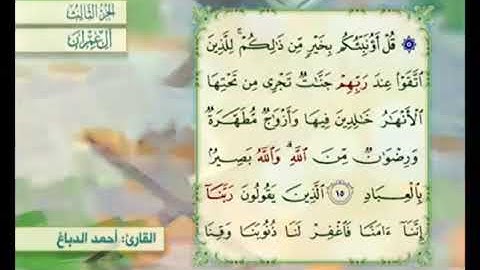 الجزء الثالث
آل عمران
قُلْ أَؤُنَبِّئُكُم بِخَيْرٍ مِّن ذَٰلِكُمْ ۚ لِلَّذِينَ
ٱتَّقَوْا۟ عِندَ رَبِّهِمْ جَنَّٰتٌ تَجْرِى مِن تَحْتِهَا
ٱلْأَنْهَٰرُ خَٰلِدِينَ فِيهَا وَأَزْوَٰجٌ مُّطَهَّرَةٌ
وَرِضْوَٰنٌ مِّنَ ٱللَّهِ ۗ وَٱللَّهُ بَصِيرٌۢ
بِٱلْعِبَادِ ١٥ ٱلَّذِينَ يَقُولُونَ رَبَّنَآ
إِنَّنَآ ءَامَنَّا فَٱغْفِرْ لَنَا ذُنُوبَنَا وَقِنَا
القارئ: أحمد الدباغ